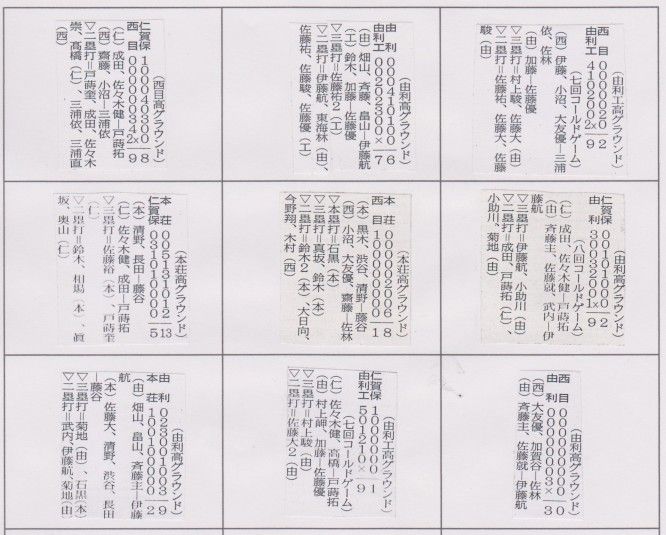 (西目高グラウンド)
仁賀保 100040300 8
西目 000000342x 9
(仁)成田、佐々木健―戸蒔拓
(西)齋藤、小沼―三浦依
▽二塁打=戸蒔奎、成田、佐々木
崇、髙橋(仁)、三浦依、三浦直
(西)
(由利高グラウンド)
由利 000410100 6
由利工 00202300x 7
(由)畑山、斉藤、畠山―伊藤航
(工)鈴木、加藤―佐藤優
▽三塁打=佐藤祐2(工)
▽二塁打=伊藤航、東海林(由)、
佐藤祐、佐藤駿、佐藤優(工)
(由利工高グラウンド)
西目 0000020 2
由利工 4102002x 9
(七回コールドゲーム)
(西)伊藤、小沼、大友優―三浦
依、佐林
(由)加藤―佐藤優
▽三塁打=村上駿、佐藤大(由)
▽二塁打=佐藤祐、佐藤大、佐藤
駿(由)
(本荘高グラウンド)
本荘 005131012 13
仁賀保 031010000 5
(本)清野、長田―藤谷
(仁)佐々木健、成田―戸蒔拓
▽三塁打=佐藤裕(本)、戸蒔奎
(仁)
▽二塁打=鈴木、相場(本)、眞
坂、奥山(仁)
(本荘高グラウンド)
本荘 000002006 8
西目 100000000 1
(本)黒木、渋谷、清野―藤谷
(西)小沼、大友優、齋藤―佐林
▽本塁打=石黒(本)
▽三塁打=真坂、鈴木(本)
▽二塁打=鈴木2(本)、大日向、
今野翔、木村(西)
(由利高グラウンド)
仁賀保 00101000 2
由利 30032001x 9
(八回コールドゲーム)
(仁)成田、佐々木健―戸蒔拓
(由)斉藤主、佐藤就、武内―伊
藤航
▽三塁打=伊藤航、小助川(由)
▽二塁打=成田、戸蒔拓(仁)、
小助川、菊地(由)
(由利高グラウンド)
由利 023001003 9
本荘 100100000 2
(由)畑山、畠山、斉藤主―伊藤
航
(本)佐藤大、清野、渋谷、長田
―藤谷
▽三塁打=菊地(由)、石黒(本)
▽二塁打=武内、伊藤航、菊地(由)
(由利工高グラウンド)
仁賀保 1000000 1
由利工 501210x 9
(七回コールドゲーム)
(仁)佐々木健、髙橋―戸蒔拓
(由)村上岬、加藤―佐藤優
▽三塁打=村上駿(由)
▽二塁打=佐藤大2(由)
(由利高グラウンド)
西目 000000000 0
由利 00000003x 3
(西)大友優、加賀谷―佐林
(由)斉藤主、佐藤就―伊藤航